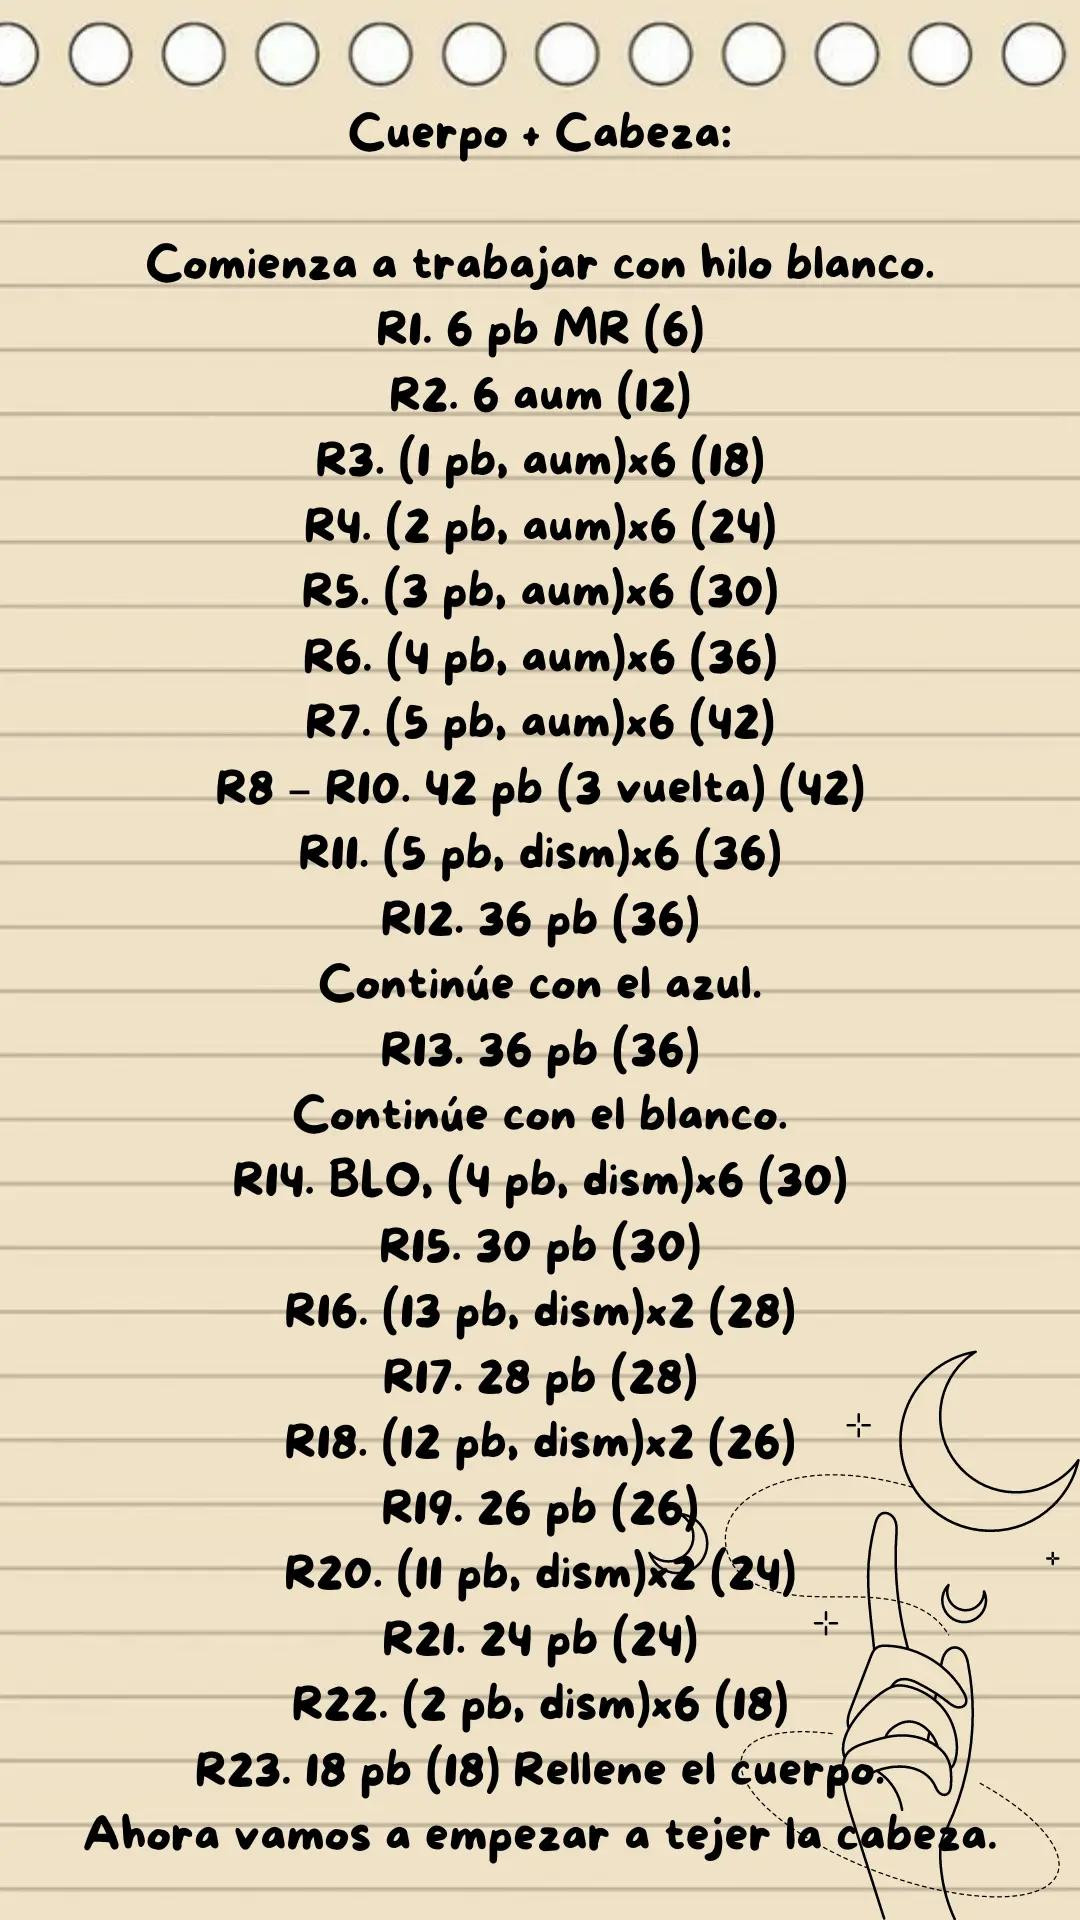 Cuerpo + Cabeza:
Comienza a trabajar con hilo blanco.
R1. 6 pb MR (6)
R2. 6 aum (12)
R3. (1 pb, aum)x6 (18)
R4. (2 pb, aum)x6 (24)
R5. (3 pb, aum)x6 (30)
R6. (4 pb, aum)x6 (36)
R7. (5 pb, aum)x6 (42)
R8 – R10. 42 pb (3 vuelta) (42)
R11. (5 pb, dism)x6 (36)
R12. 36 pb (36)
Continúe con el azul.
R13. 36 pb (36)
Continúe con el blanco.
R14. BLO, (4 pb, dism)x6 (30)
R15. 30 pb (30)
R16. (13 pb, dism)x2 (28)
R17. 28 pb (28)
R18. (12 pb, dism)x2 (26)
R19. 26 pb (26)
R20. (11 pb, dism)x2 (24)
R21. 24 pb (24)
R22. (2 pb, dism)x6 (18)
R23. 18 pb (18) Rellene el cuerpo.
Ahora vamos a empezar a tejer la cabeza.